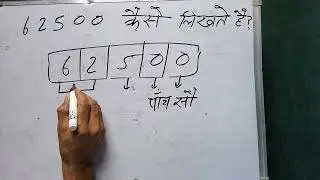 62500 कैसे लिखते है?
6 2 5 0 0
पाँच सौ